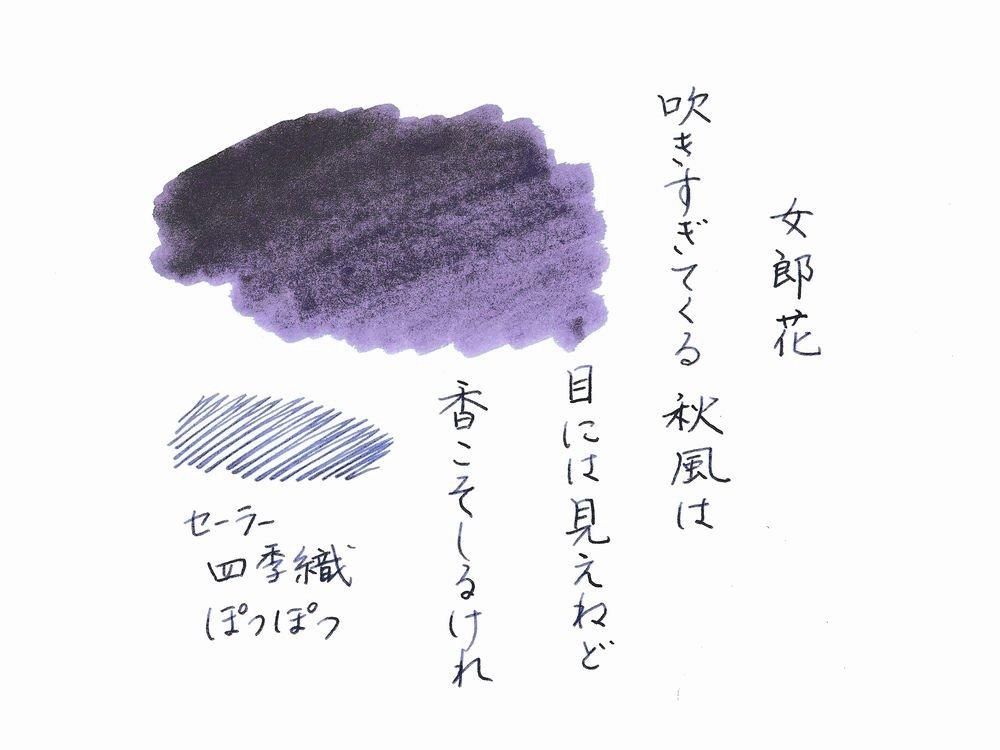 女郎花
吹きすぎてくる 秋風は
目には見えねど
香こそしるけれ
セーラー
四季織
ぽつぽつ